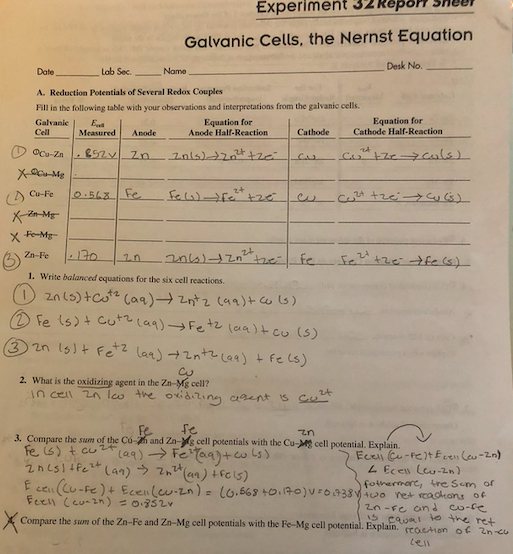 Experiment 32 Report Sheet
Galvanic Cells, the Nernst Equation
Date Lab Sec. Name Desk No.
A. Reduction Potentials of Several Redox Couples
Fill in the following table with your observations and interpretations from the galvanic cells.
Galvanic Cell Ecell Measured Anode Equation for Anode Half-Reaction Cathode Equation for Cathode Half-Reaction
① Cu–Zn .852V Zn Zn(s)→Zn²⁺+2e⁻ Cu Cu²⁺+2e→Cu(s)
X Cu–Mg
② Cu–Fe 0.568 Fe Fe(s)→Fe²⁺+2e⁻ Cu Cu²⁺+2e⁻→Cu(s)
X Zn–Mg
X Fe–Mg
③ Zn–Fe .170 Zn Zn(s)→Zn²⁺+2e⁻ Fe Fe²⁺+2e⁻→Fe(s)
1. Write balanced equations for the six cell reactions.
① Zn(s)+Cu⁺²(aq)→Zn⁺²(aq)+Cu(s)
② Fe(s)+Cu⁺²(aq)→Fe⁺²(aq)+Cu(s)
③ Zn(s)+Fe⁺²(aq)→Zn⁺²(aq)+Fe(s)
Cu
2. What is the oxidizing agent in the Zn–Mg cell?
In cell Zn/Cu the oxidizing agent is Cu²⁺
Fe Fe Zn
3. Compare the sum of the Cu–Zn and Zn–Mg cell potentials with the Cu–Mg cell potential. Explain.
Fe(s)+Cu²⁺(aq)→Fe²⁺(aq)+Cu(s)
Zn(s)+Fe²⁺(aq)→Zn²⁺(aq)+Fe(s)
Ecell(Cu-Fe)+Ecell(Cu-Zn)=(0.568+0.170)V=0.738V
Ecell(Cu-Zn)=0.852V
Ecell(Cu-Fe)+Ecell(Cu-Zn)
∠ Ecell(Cu-Zn)
fothermore, the sum of
two net reactions of
Zn-Fe and Cu-Fe
is equal to the net
reaction of Zn-Cu
cell
X Compare the sum of the Zn–Fe and Zn–Mg cell potentials with the Fe–Mg cell potential. Explain.